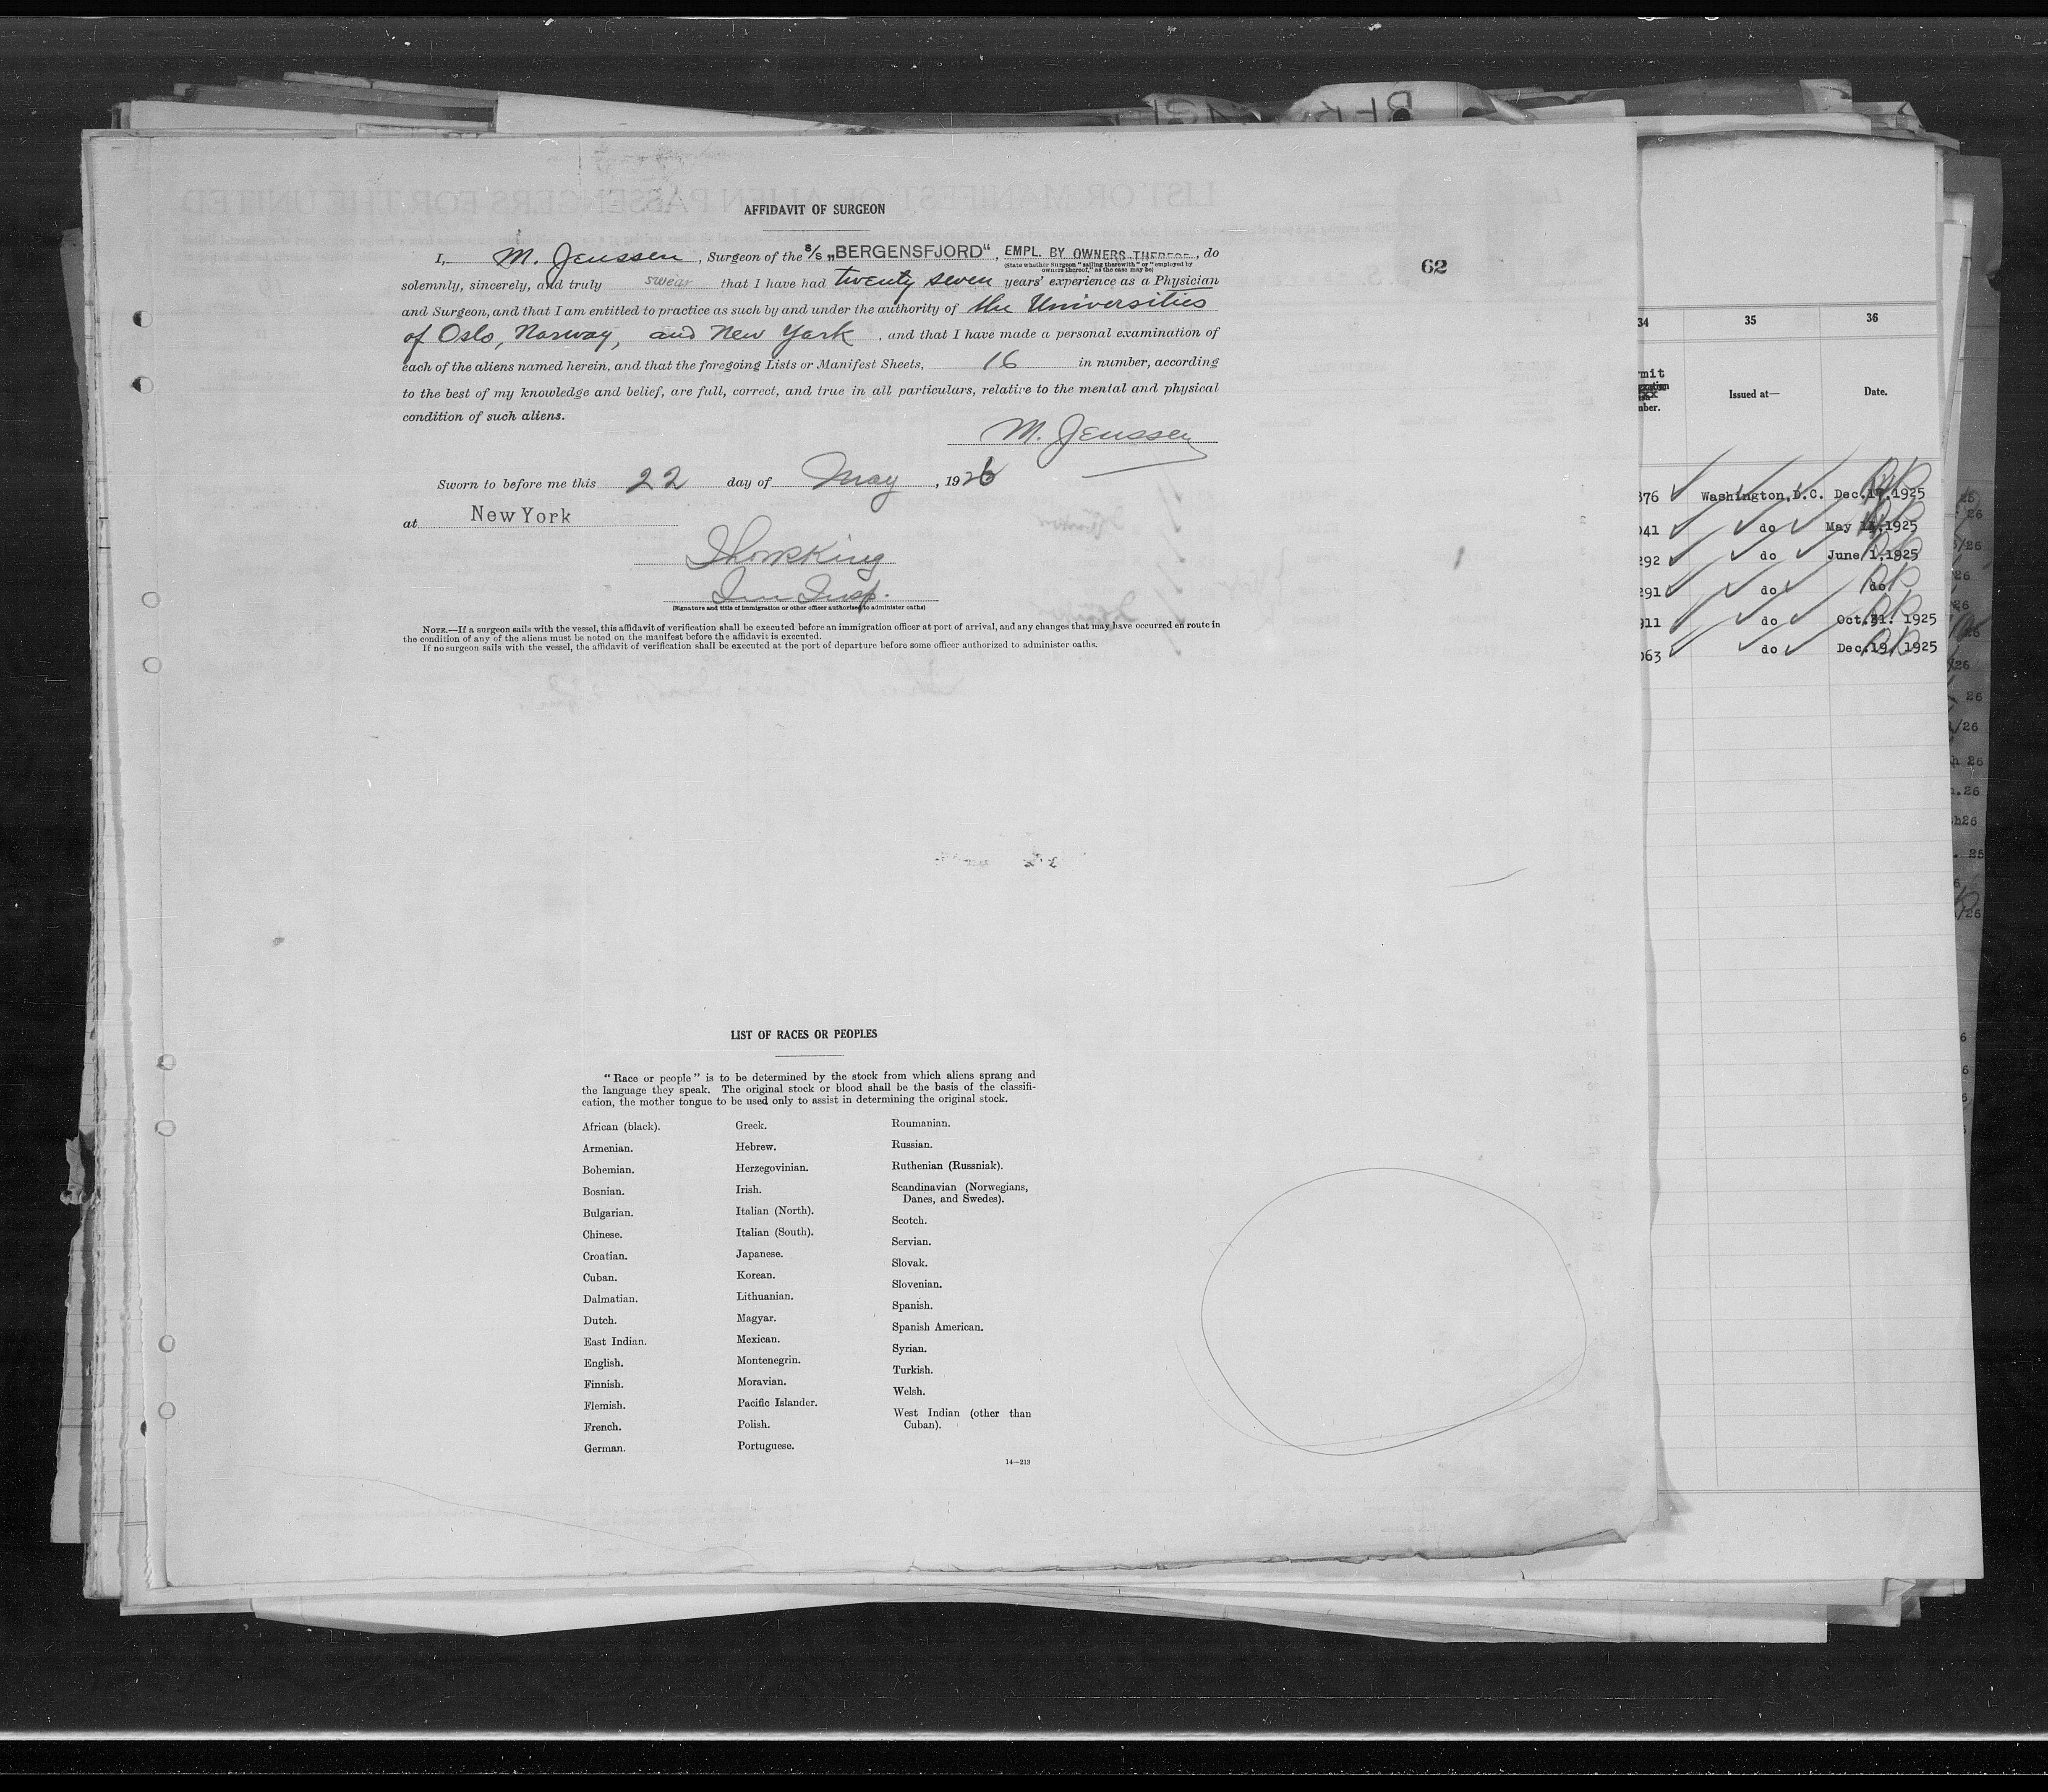 AFFIDAVIT OF SURGEON
I, M. Jenssen, Surgeon of the S/S „BERGENSFJORD“, EMPL. BY OWNERS THEREOF, do
(State whether Surgeon "sailing therewith" or "employed by
owners thereof," as the case may be)
solemnly, sincerely, and truly swear that I have had twenty seven years' experience as a Physician
and Surgeon, and that I am entitled to practice as such by and under the authority of the Universities
of Oslo, Norway, and New York, and that I have made a personal examination of
each of the aliens named herein, and that the foregoing Lists or Manifest Sheets, 16 in number, according
to the best of my knowledge and belief, are full, correct, and true in all particulars, relative to the mental and physical
condition of such aliens.
M. Jenssen
Sworn to before me this 22 day of May, 1926
at New York
Imm Insp.
(Signature and title of immigration or other officer authorized to administer oaths)
NOTE.—If a surgeon sails with the vessel, this affidavit of verification shall be executed before an immigration officer at port of arrival, and any changes that may have occurred en route in
the condition of any of the aliens must be noted on the manifest before the affidavit is executed.
If no surgeon sails with the vessel, the affidavit of verification shall be executed at the port of departure before some officer authorized to administer oaths.
62
LIST OF RACES OR PEOPLES
"Race or people" is to be determined by the stock from which aliens sprang and
the language they speak. The original stock or blood shall be the basis of the classifi-
cation, the mother tongue to be used only to assist in determining the original stock.
African (black).
Armenian.
Bohemian.
Bosnian.
Bulgarian.
Chinese.
Croatian.
Cuban.
Dalmatian.
Dutch.
East Indian.
English.
Finnish.
Flemish.
French.
German.
Greek.
Hebrew.
Herzegovinian.
Irish.
Italian (North).
Italian (South).
Japanese.
Korean.
Lithuanian.
Magyar.
Mexican.
Montenegrin.
Moravian.
Pacific Islander.
Polish.
Portuguese.
Roumanian.
Russian.
Ruthenian (Russniak).
Scandinavian (Norwegians,
Danes, and Swedes).
Scotch.
Servian.
Slovak.
Slovenian.
Spanish.
Spanish American.
Syrian.
Turkish.
Welsh.
West Indian (other than
Cuban).
14—213
34 35 36
Issued at— Date.
376 Washington, D.C. Dec.17,1925
041 do May 14,1925
292 do June 1,1925
291 do do
911 do Oct.31. 1925
063 do Dec.19, 1925